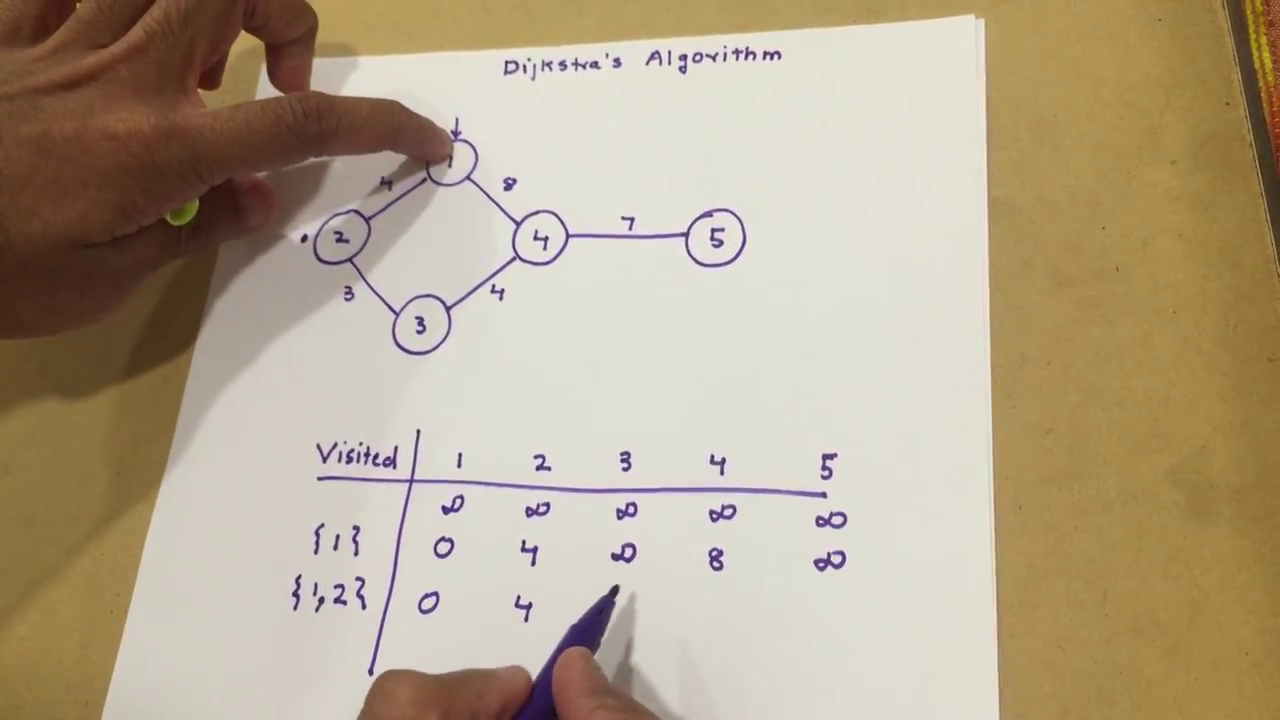 Dijkstra's Algorithm
1
4
8
2
4
7
5
3
4
3
Visited 1 2 3 4 5
∞ ∞ ∞ ∞ ∞
{1} 0 4 ∞ 8 ∞
{1,2} 0 4